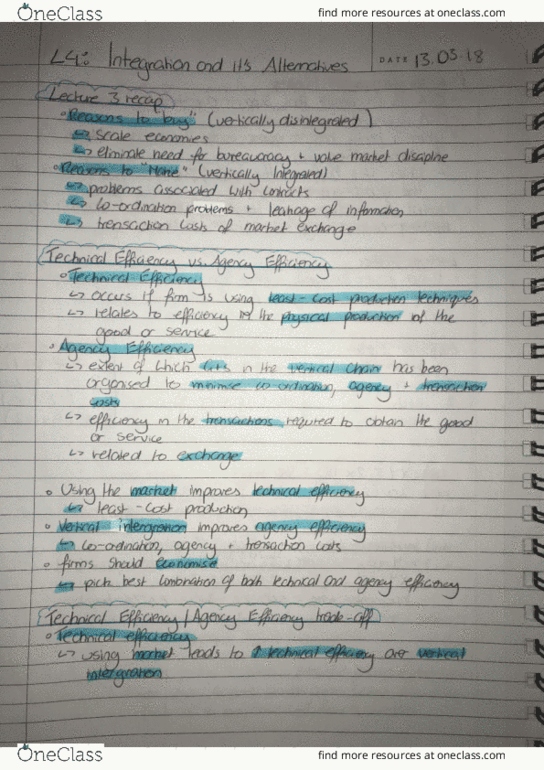 OneClass
find more resources at oneclass.com
L4: Integration and its Alternatives
DATE 13.03.18
Lecture 3 recap
Reasons to "buy" (vertically disintegrated)
↳ scale economies
↳ eliminate need for bureaucracy + market discipline
Reasons to "Make" (vertically integrated)
↳ problems associated with contracts
↳ co-ordination problems + leakage of information
↳ transaction costs of market exchange
Technical Efficiency vs. Agency Efficiency
Technical Efficiency
↳ occurs if firm is using least-cost production techniques
↳ relates to efficiency in the physical production of the
good or service
Agency Efficiency
↳ extent of which in the vertical chain has been
organised to minimise co-ordination, agency + transaction
costs
↳ efficiency in the transactions required to obtain the good
or service
↳ related to exchange
Using the market improves technical efficiency
↳ least-cost production
Vertical intergration improves agency efficiency
↳ co-ordination, agency + transaction costs
firms should economise
↳ pick best combination of both technical and agency efficiency
Technical Efficiency/Agency Efficiency trade-off
Technical efficiency
↳ using market leads to ↑ technical efficiency over vertical
intergration
OneClass
find more resources at oneclass.com